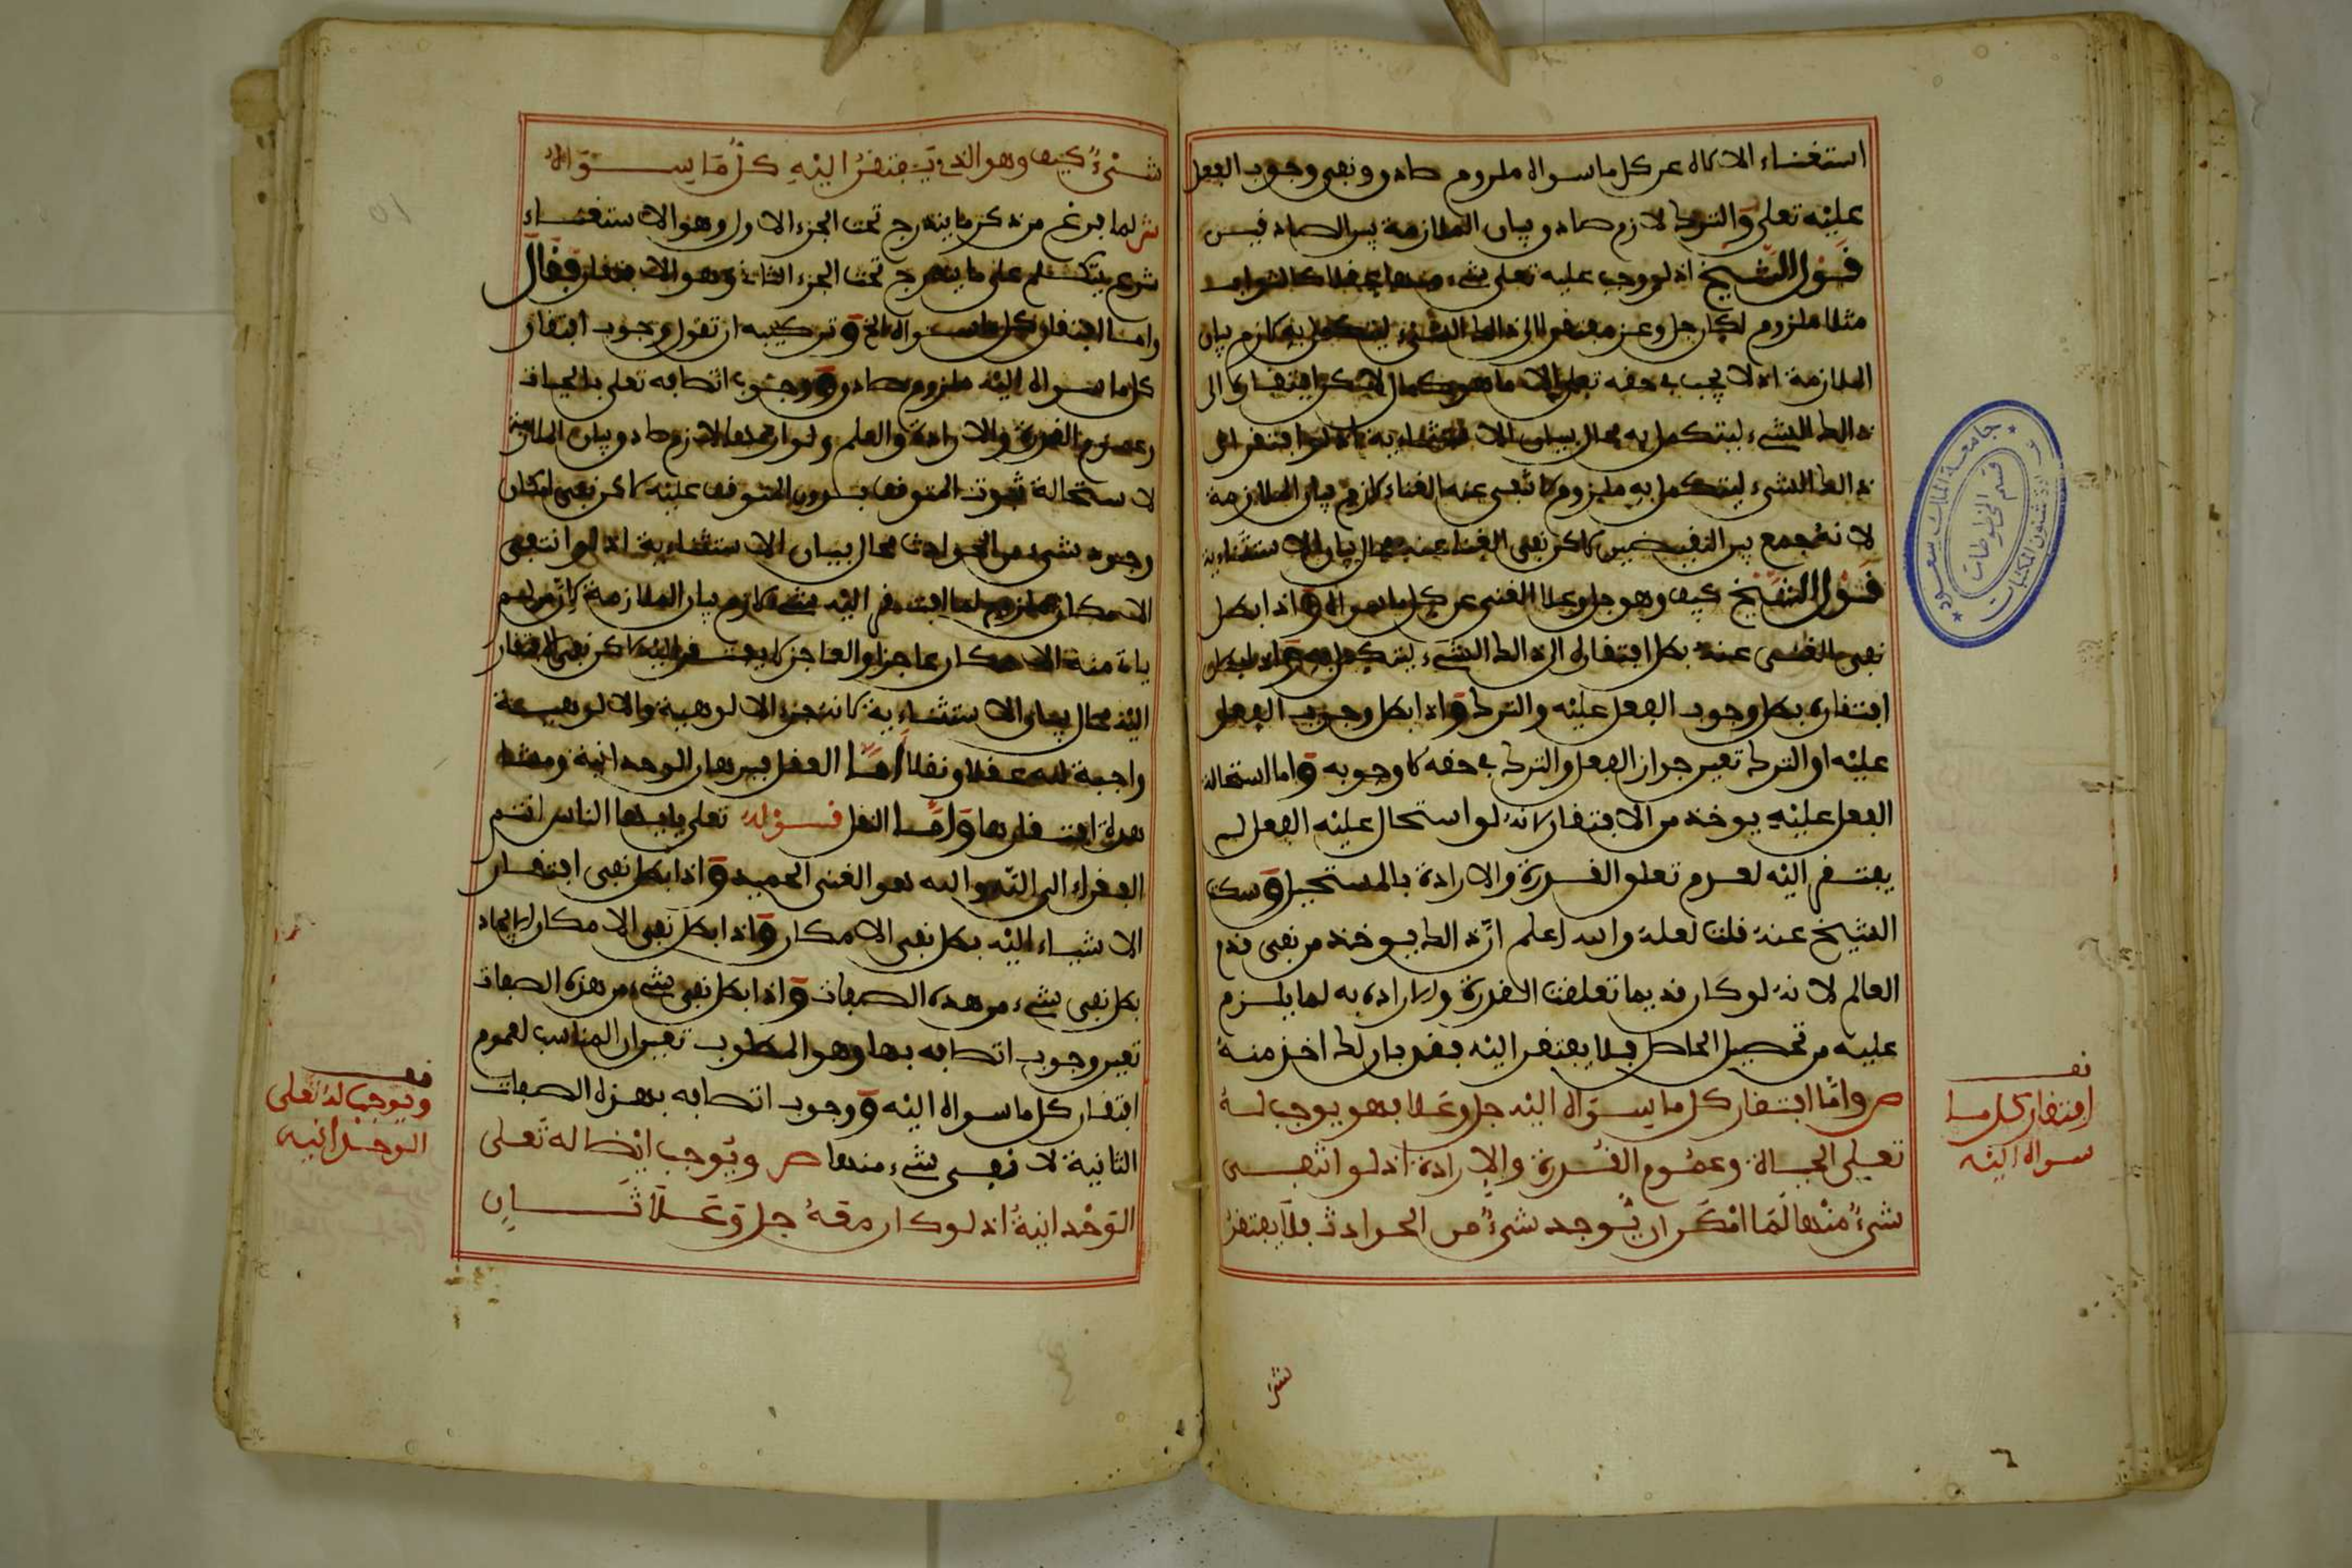 استغناء الاله عن كل ما سواه ملزوم صادق ونفي وجوب الفعل
عليه تعلى والترك لازم صادق وبيان الملازمة بين الصادقين
قول الشيخ اذ لو وجب عليه تعلى شيء منها عقلا كالثواب
مثلا ملزوم لكان جل وعز مفتقرا الى ذالك الشيء ليتكمل به لازم بيان
الملازمة اذ لا يجب في حقه تعلى الا ما هو كمال له لاكن افتقاره الى
ذالك الشيء ليتكمل به محال بيان الاستثنائية انه لو افتقر الى
ذالك الشيء ليتكمل به ملزوم لانتفى عنه الغناء لازم بيان الملازمة
لانه جمع بين النقيضين لاكن نفي الغنا عنه محال بيان الاستثناءية
قول الشيخ كيف وهو جل وعلا الغني عن كل ما سواه واذا بطل
نفي الغنى عنه بطل افتقاره الى ذالك الشيء ليتكمل به واذا بطل
افتقاره بطل وجوب الفعل عليه والترك واذا بطل وجوب الفعل
عليه او الترك تعين جواز الفعل والترك في حقه لا وجوبه واما استحالة
الفعل عليه يوخذ من الافتقار لانه لو استحال عليه الفعل لم
يفتقر اليه لعدم تعلق القدرة والارادة بالمستحيل وسكت
الشيخ عنه قلت لعله والله اعلم ان ذالك يوخذ من نفي قدم
العالم لانه لو كان قديما تعلقت القدرة والارادة به لما يلزم
عليه من تحصيل الحاصل فلا يفتقر اليه فقد بان لك اخذ منه
ص واما افتقار كل ما سواه اليه جل وعلا فهو يوجب له
تعلى الحياة وعموم القدرة والارادة اذ لو انتفى
شيء منها لما امكن ان يوجد شيء من الحوادث فلا يفتقر
نف
افتقار كل ما
سواه اليه
ش
جامعة الملك سعود
عمادة شئون المكتبات
قسم المخطوطات
شيء كيف وهو الذي يفتقر اليه كل ما سواه
ش لما فرغ من ذكر ما يندرج تحت الجزء الاول وهو الاستغناء
شرع يتكلم على ما يندرج تحت الجزء الثاني وهو الافتقار فقال
واما افتقار كل ما سواه الخ وتركيبه ان تقول وجوب افتقار
كل ما سواه اليه ملزوم صادق ووجوب اتصافه تعلى بالحيات
وعموم القدرة والارادة والعلم ولوازمها لازم صادق وبيان الملازمة
لاستحالة ثبوت المتوقف بدون المتوقف عليه لاكن نفي امكان
وجود شيء من الحوادث محال بيان الاستثناءية اذ لو انتفى
الامكان ملزوم لما افتقر اليه شيء لازم بيان الملازمة لان من لم
يات منه الامكان عاجز والعاجز لا يفتقر اليه لاكن نفي الافتقار
اليه محال بيان الاستثناءية لانه جزء الالوهية والالوهية
واجبة لله عقلا ونقلا اما العقل فبرهان الوحدانية ومثله
هدلة افتقارها واما النقل فقوله تعلى يايها الناس انتم
الفقراء الى الله والله هو الغني الحميد واذا بطل نفي افتقار
الاشياء اليه بطل نفي الامكان واذا بطل نفي الامكان للايجاد
بطل نفي شيء من هذه الصفات واذا بطل نفي شيء من هذه الصفات
تعين وجوب اتصافه بها وهو المطلوب تعين ان المناسب لعموم
افتقار كل ما سواه اليه ووجوب اتصافه بهذه الصفات
الثانية لا نفي شيء منها ص ويوجب ايضا له تعلى
الوحدانية اذ لو كان معه جل وعلا ثان
قف
ويوجب له تعلى
الوحدانية